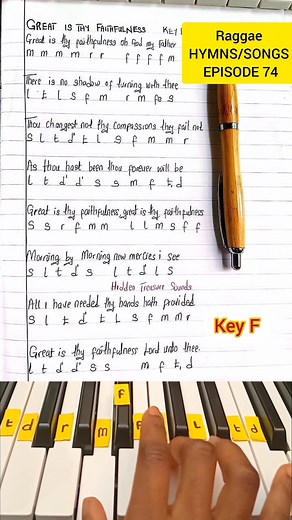 GREAT IS THY FAITHFULNESS KEY
Raggae
HYMNS/SONGS
EPISODE 74
Great is thy faithfulness oh God my Father
m m m m r r f f f f m
There is no shadow of turning with thee
l t l s f m r m fe s
Thou changest not thy compassions they fail not
s l t d' t l s f m m r
As thou hast been thou forever will be
l t d' d' s s m f t, d
Great is thy faithfulness, great is thy faithfulness
s s r f m m l l m s f f
Morning by Morning new mercies i see
s l t d' s l t d' l s
Hidden Treasure Sounds
All I have needed thy hands hath provided
s l t d' t l s f m m r
Key F
Great is thy faithfulness Lord unto thee.
l t d' d' s s m f t, d
f
t d r m f l t d